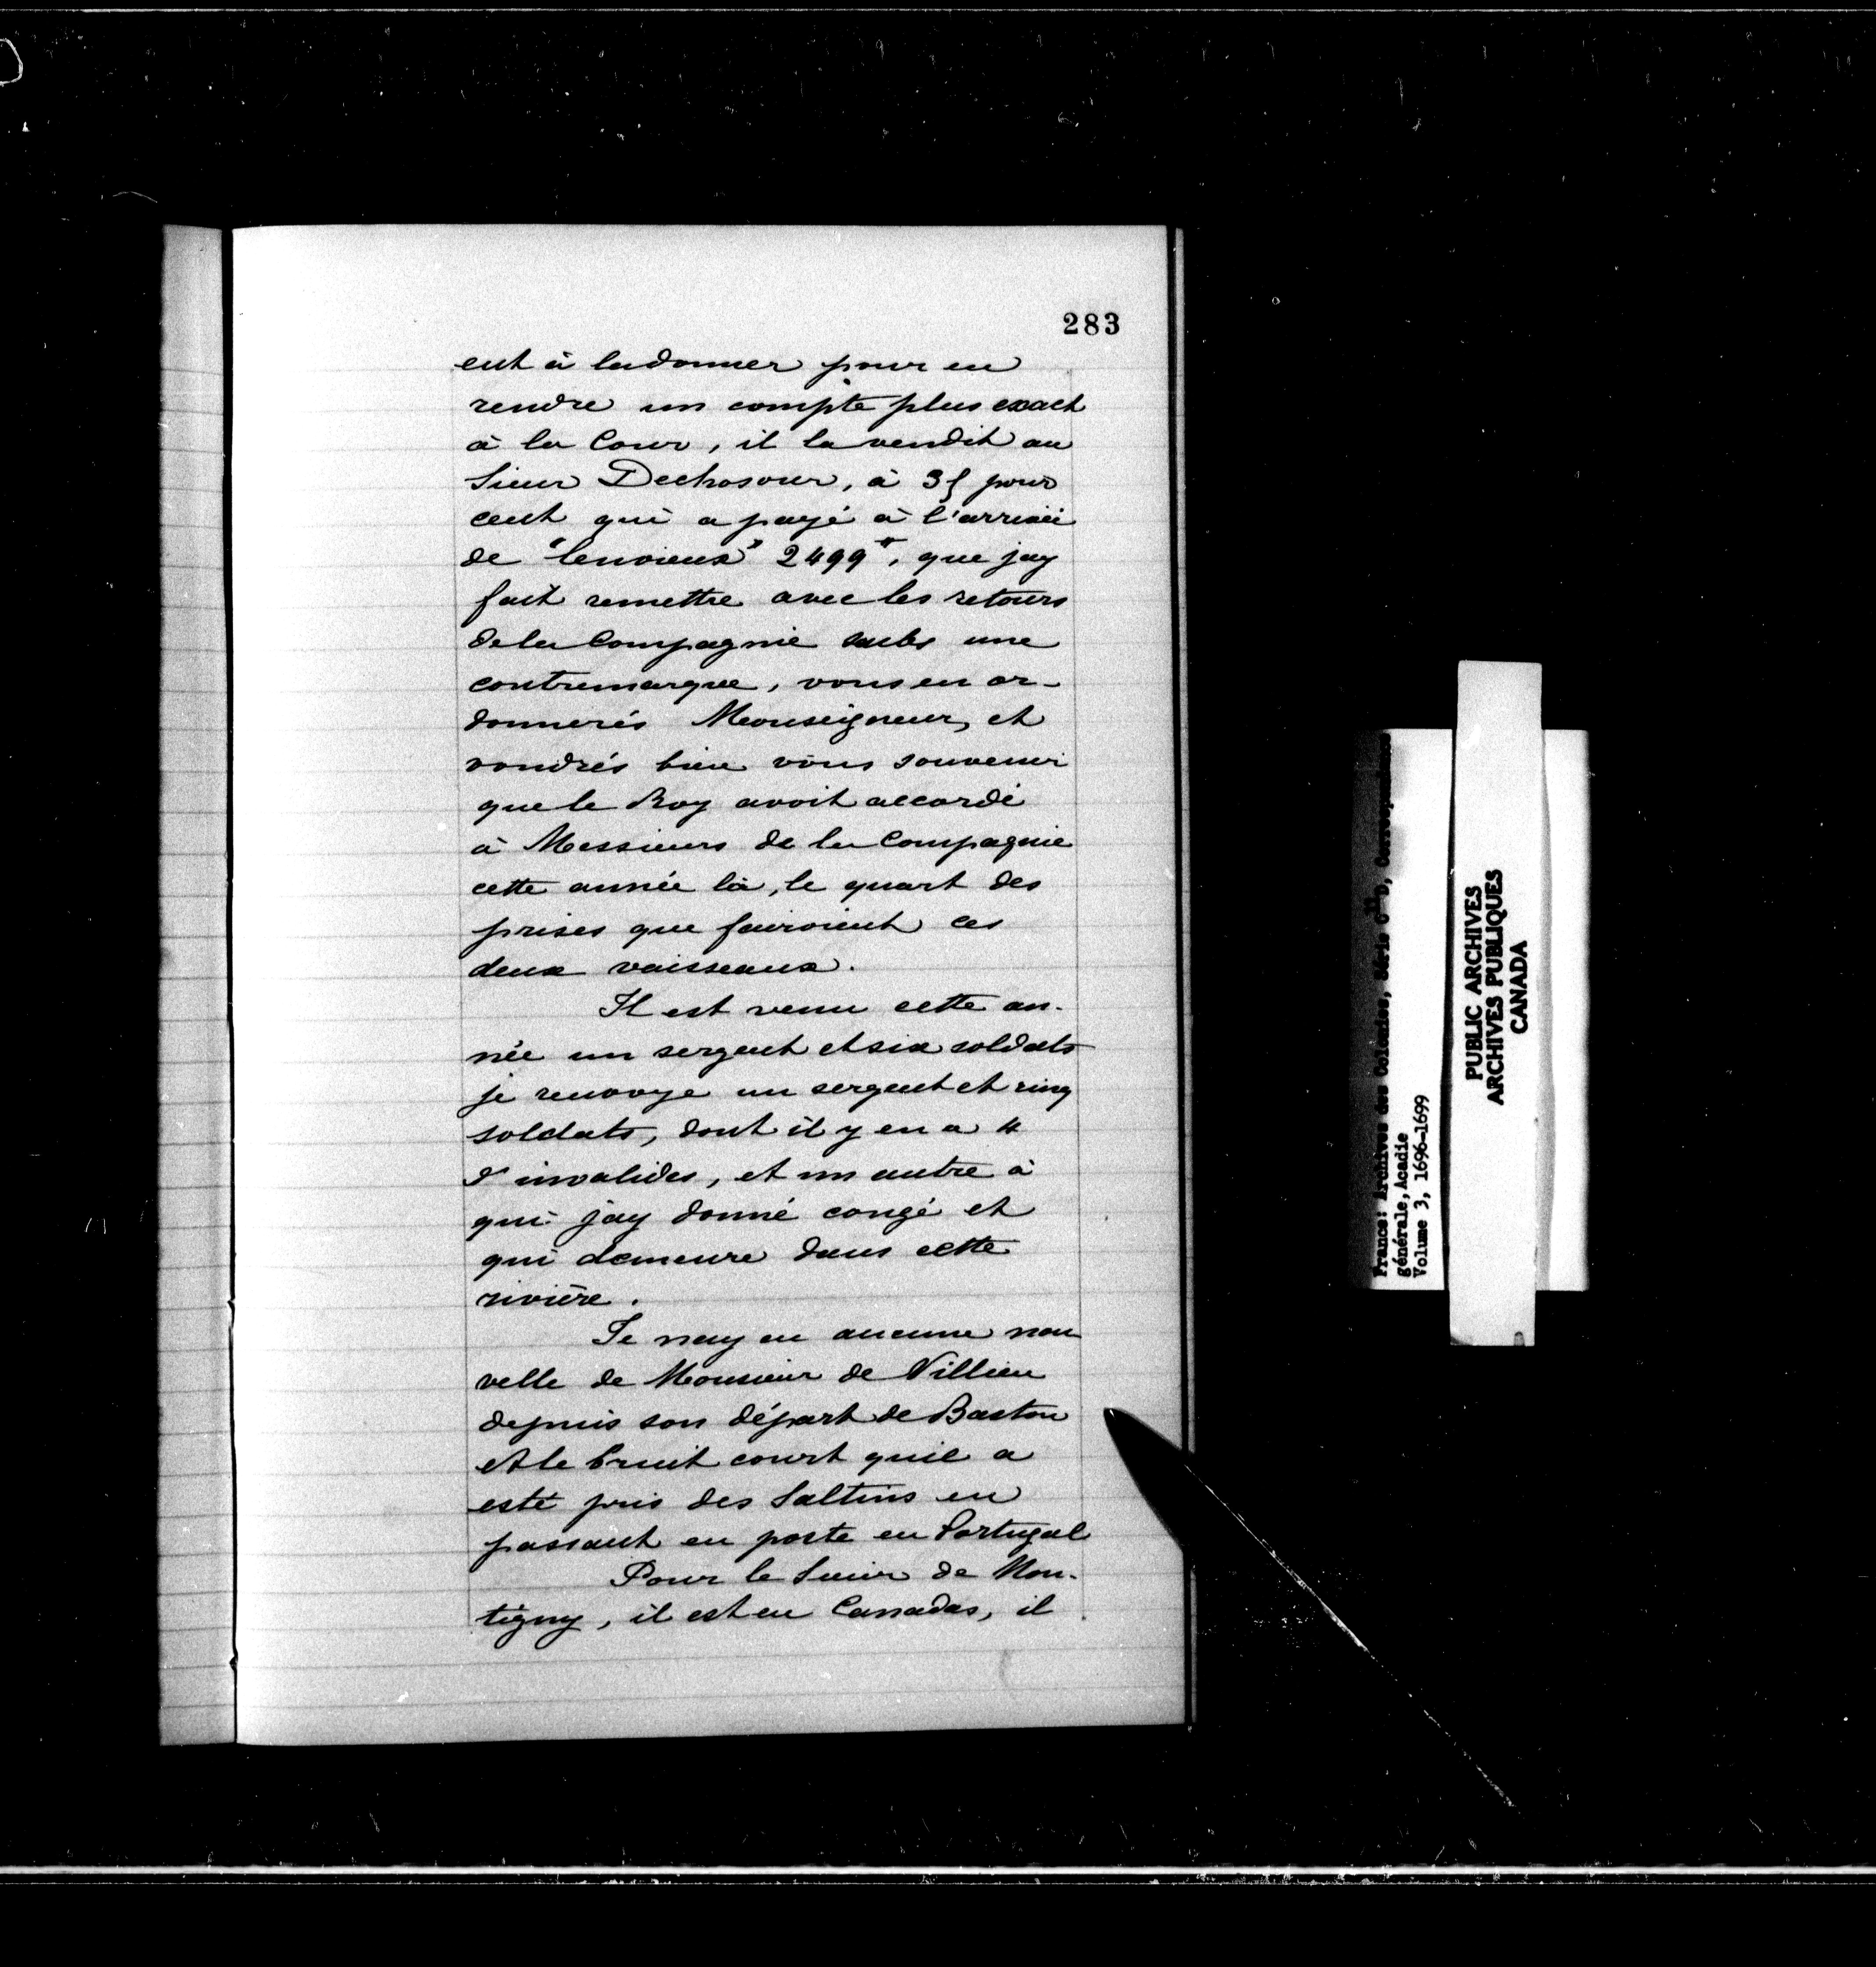 283
eut à la donner pour en
rendre un compte plus exact
à la Cour, il la vendit au
Sieur Dechosour, à 35 pour
cent qui a payé à l'arrivée
de "lenvieux" 2499#, que jay
fait remettre avec les retours
de la Compagnie une
contremarque, vous en or-
donnerés Monseigneur, et
voudrés bien vous souvenir
que le Roy avoit accordé
à Messieurs de la Compagnie
cette année là, le quart des
prises que fairoient ces
deux vaisseaux.
Il est venu cette an-
née un sergent et six soldats
je renvoye un sergent et cinq
soldats, dont il y en a 4
d'invalides, et un autre à
qui jay donné congé et
qui demeure dans cette
rivière.
Je nay eu aucune nou
velle de Monsieur de Villieu
depuis son départ de Baston
et le bruit court quil a
esté pris des Saltins en
passant en poste en Portugal
Pour le Sieur de Mon-
tigny, il est en Canadas, il
France: Archives des Colonies, Série C11D, Correspondance
générale, Acadie
Volume 3, 1696-1699
PUBLIC ARCHIVES
ARCHIVES PUBLIQUES
CANADA